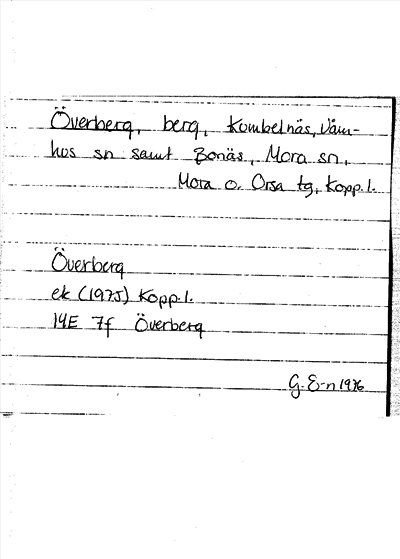 Överberg, berg, Kumbelnäs, Våm-
hus sn samt Bonäs, Mora sn,
Mora o. Orsa tg, Kopp. l.
Överberg
ek (1975) Kopp. l.
14E 7f Överberg
G. E-n 1976